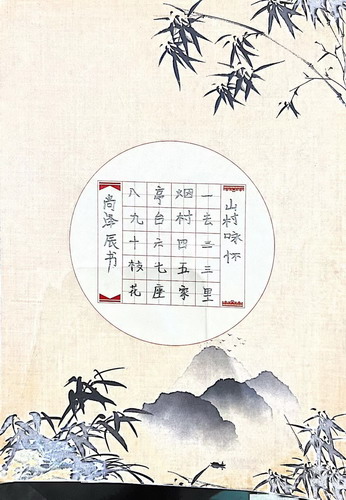 山村咏怀
一去二三里
烟村四五家
亭台六七座
八九十枝花
尚泽辰书